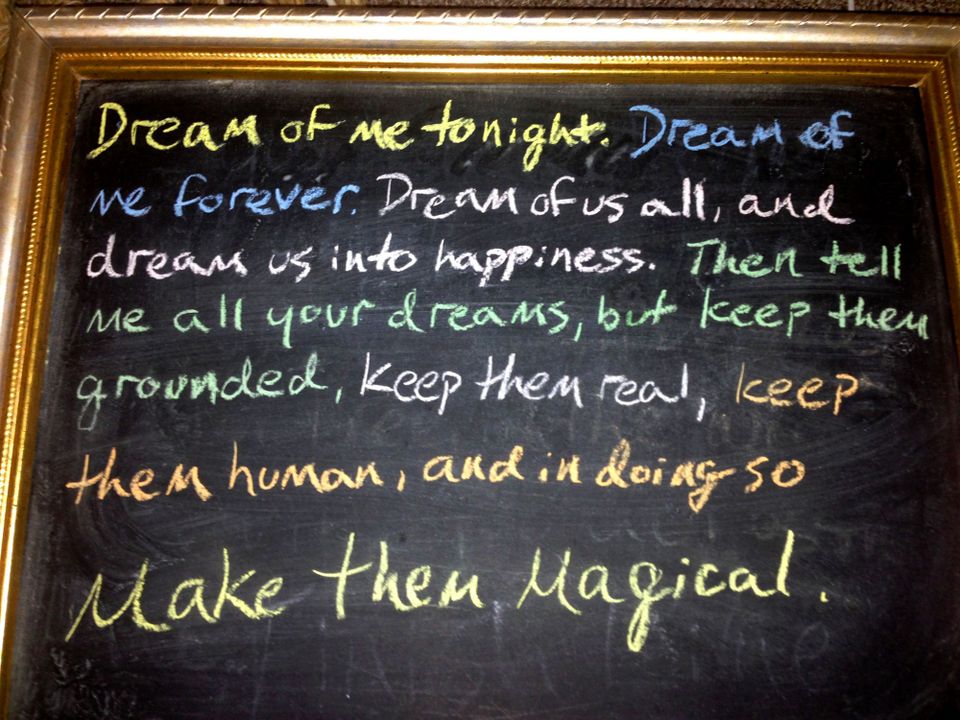 Dream of me tonight. Dream of
me forever. Dream of us all, and
dream us into happiness. Then tell
me all your dreams, but keep them
grounded, keep them real, keep
them human, and in doing so
Make them Magical.